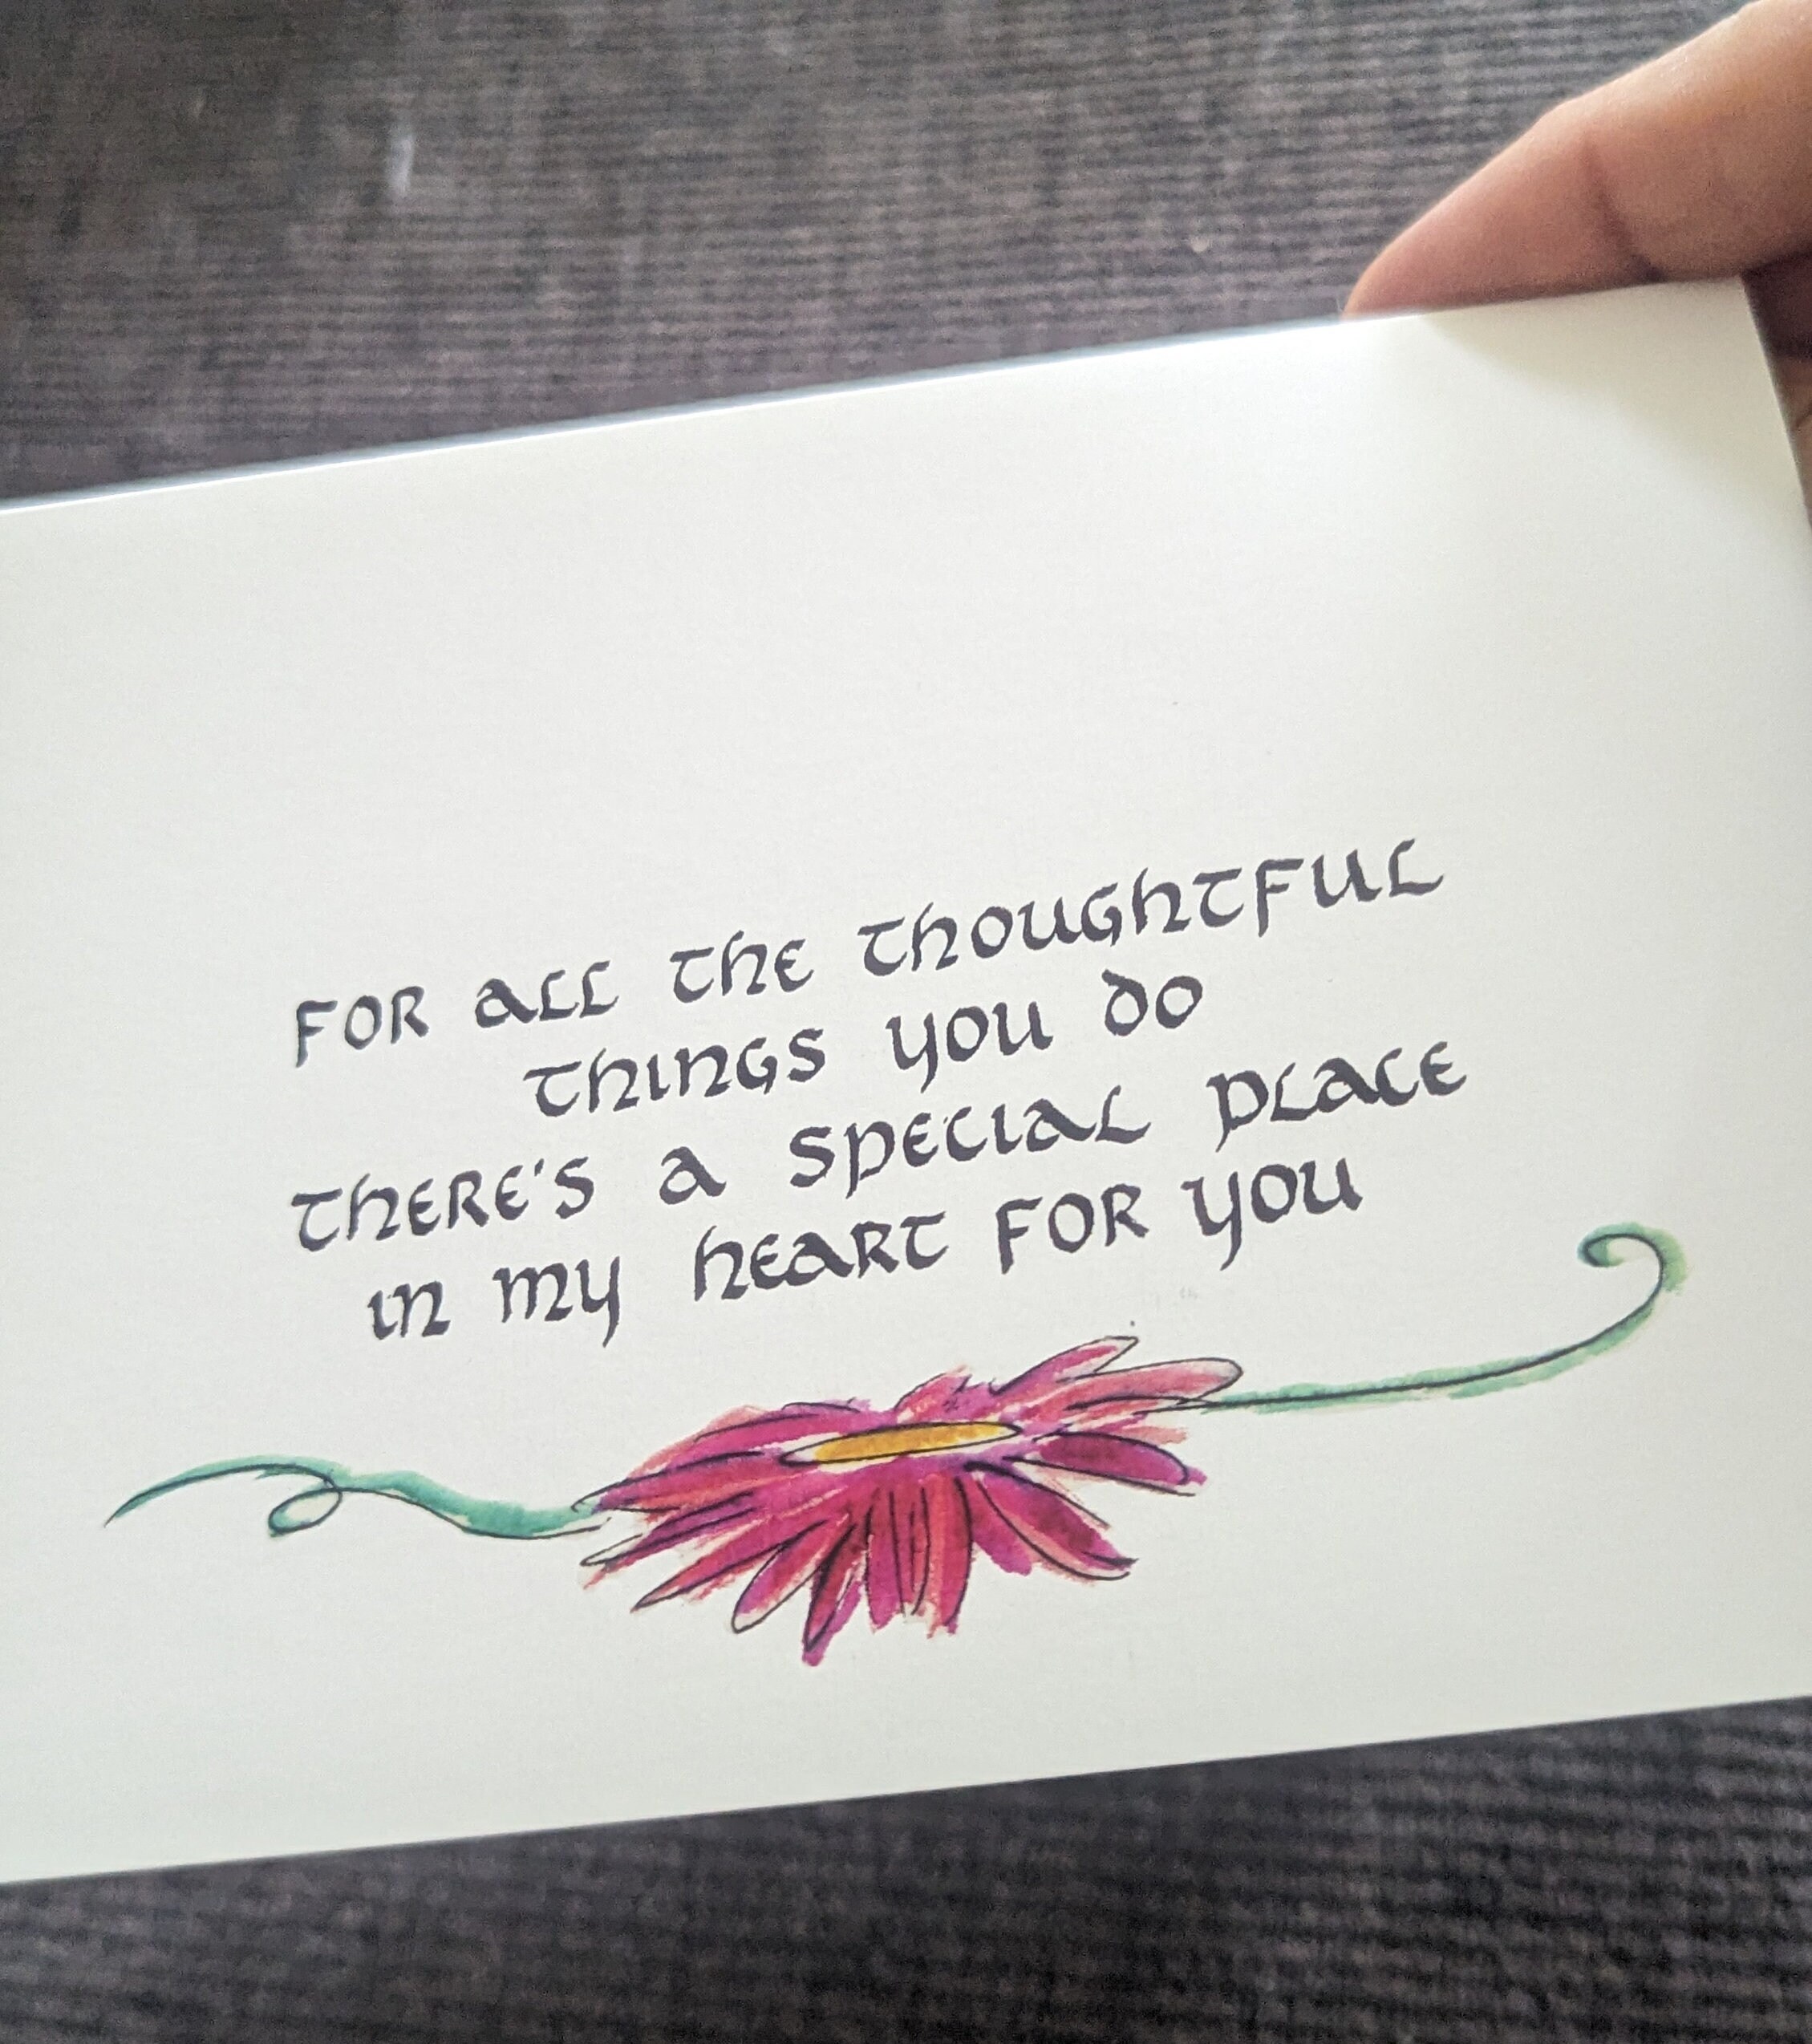 FOR ALL THE THOUGHTFUL
THINGS YOU DO
THERE'S A SPECIAL PLACE
IN MY HEART FOR YOU